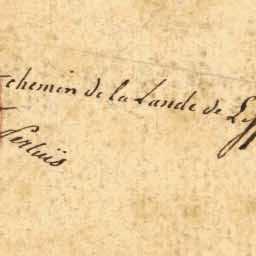 chemin de la Lande de
Perluis